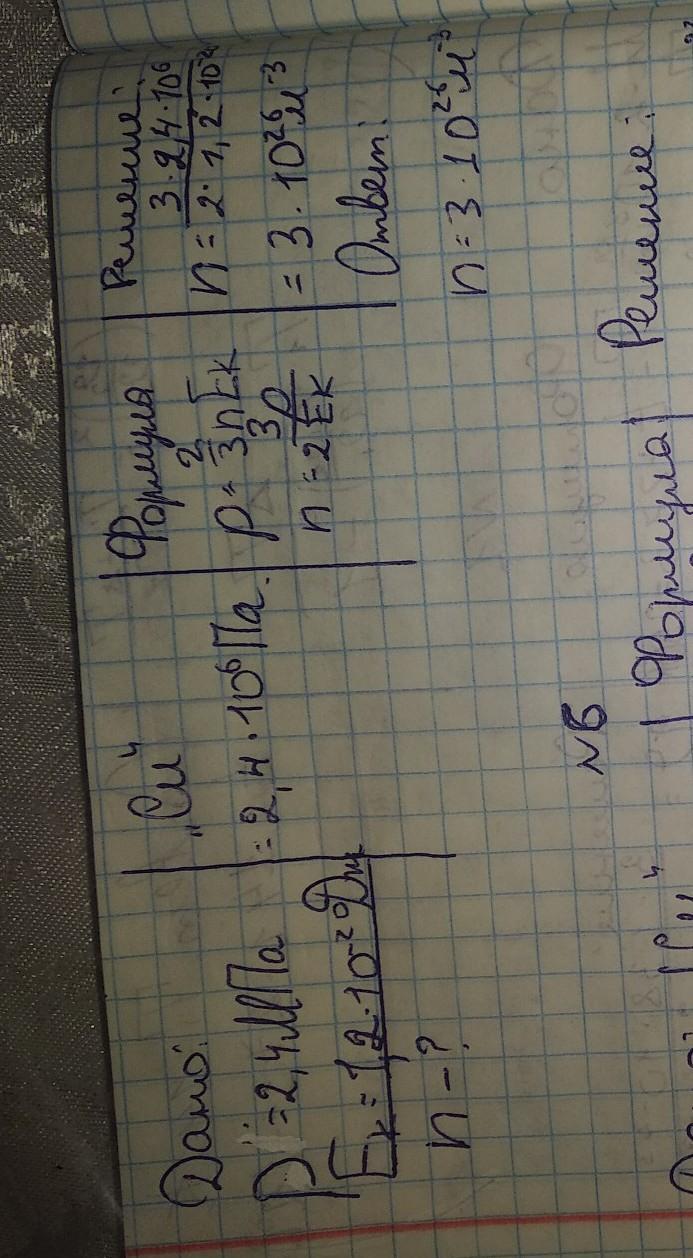 Дано:
P = 2,4 МПа
Eк = 1,2 · 10⁻²⁰ Дж
n - ?
„Си"
= 2,4 · 10⁶ Па.
Формула
p = 2/3 n Eк
n = 3p / 2Eк
Решение:
n = 3 · 2,4 · 10⁶ / 2 · 1,2 · 10⁻²⁰
= 3 · 10²⁶ м⁻³
Ответ:
n = 3 · 10²⁶ м⁻³
№5
Формула
Решение: